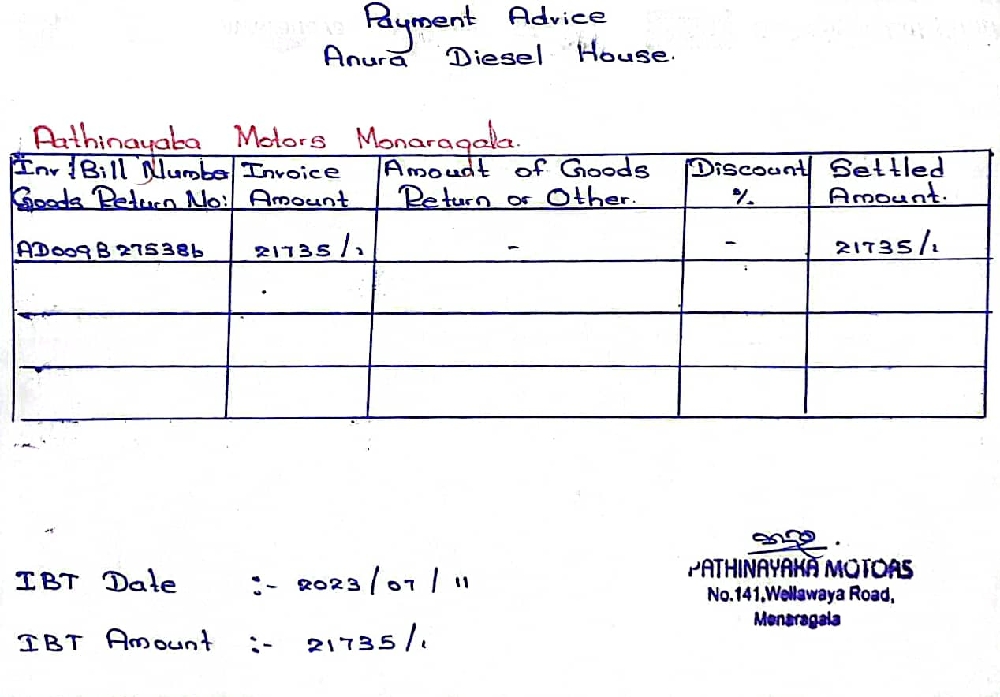 Payment Advice
Anura Diesel House.
Pathinayaka Motors Monaragala.
Inv/Bill Number Goods Return No: Invoice Amount Amoudt of Goods Return or Other. Discount % Settled Amount.
AD009B275386 21735/- - - 21735/-
IBT Date :- 2023/07/11
IBT Amount :- 21735/-
PATHINAYAKA MOTORS
No.141,Wellawaya Road,
Monaragala